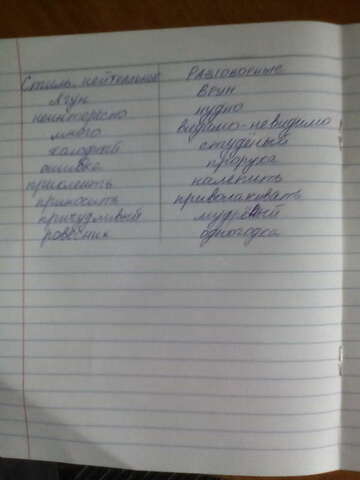 Стиль. нейтральные РАЗГОВОРНЫЕ
лгун врун
неинтересно нудно
много видимо-невидимо
холодный студёный
ошибка проруха
приклеить налепить
приносить приволакивать
причудливый мудрёный
ровесник одногодка